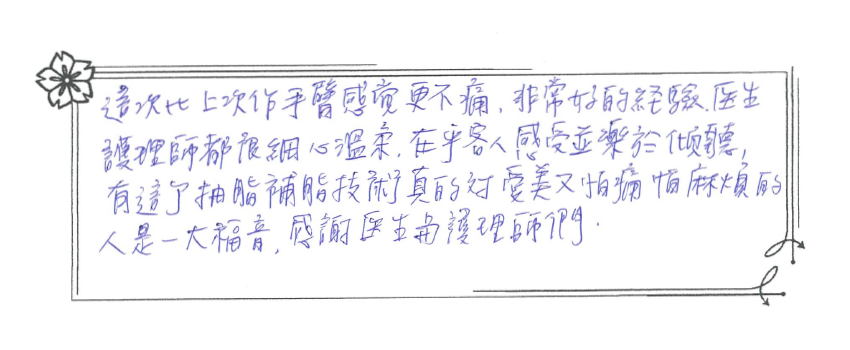 這次比上次作手臂感觉更不痛，非常好的経驗.医生
護理師都很細心溫柔，在乎客人感受並樂於傾聽，
有這了抽脂補脂技術真的对愛美又怕痛怕麻煩的
人是一大福音，感謝医生与護理師們．